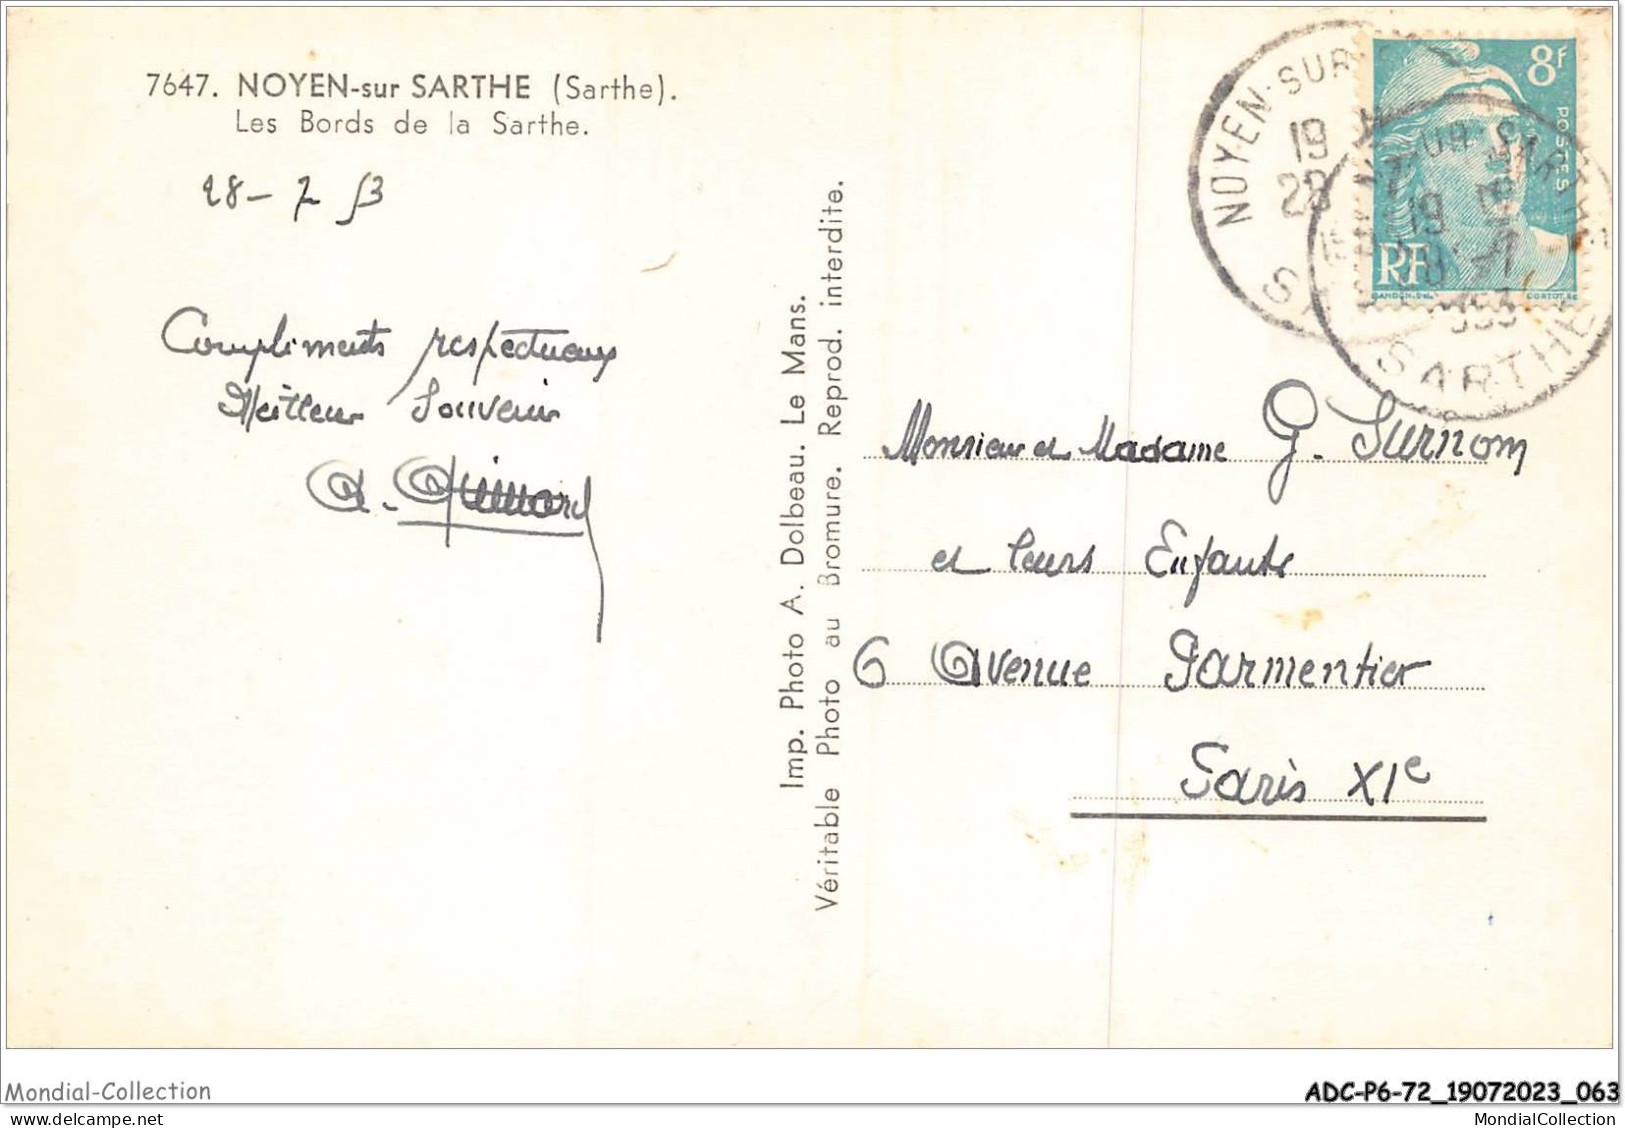 7647. NOYEN-sur SARTHE (Sarthe).
Les Bords de la Sarthe.
28 - 7 53
Compliments respectueux
Meilleur Souvenir
Imp. Photo A. Dolbeau. Le Mans.
Véritable Photo au Bromure. Reprod. interdite.
NOYEN-SUR
19
28
8F
POSTES
RF
GANDON
CORTOT
SARTHE
Monsieur et Madame G. Surnom
et leurs Enfants
6 Avenue Parmentier
Paris XIe
Mondial-Collection
ADC-P6-72_19072023_063
MondialCollection